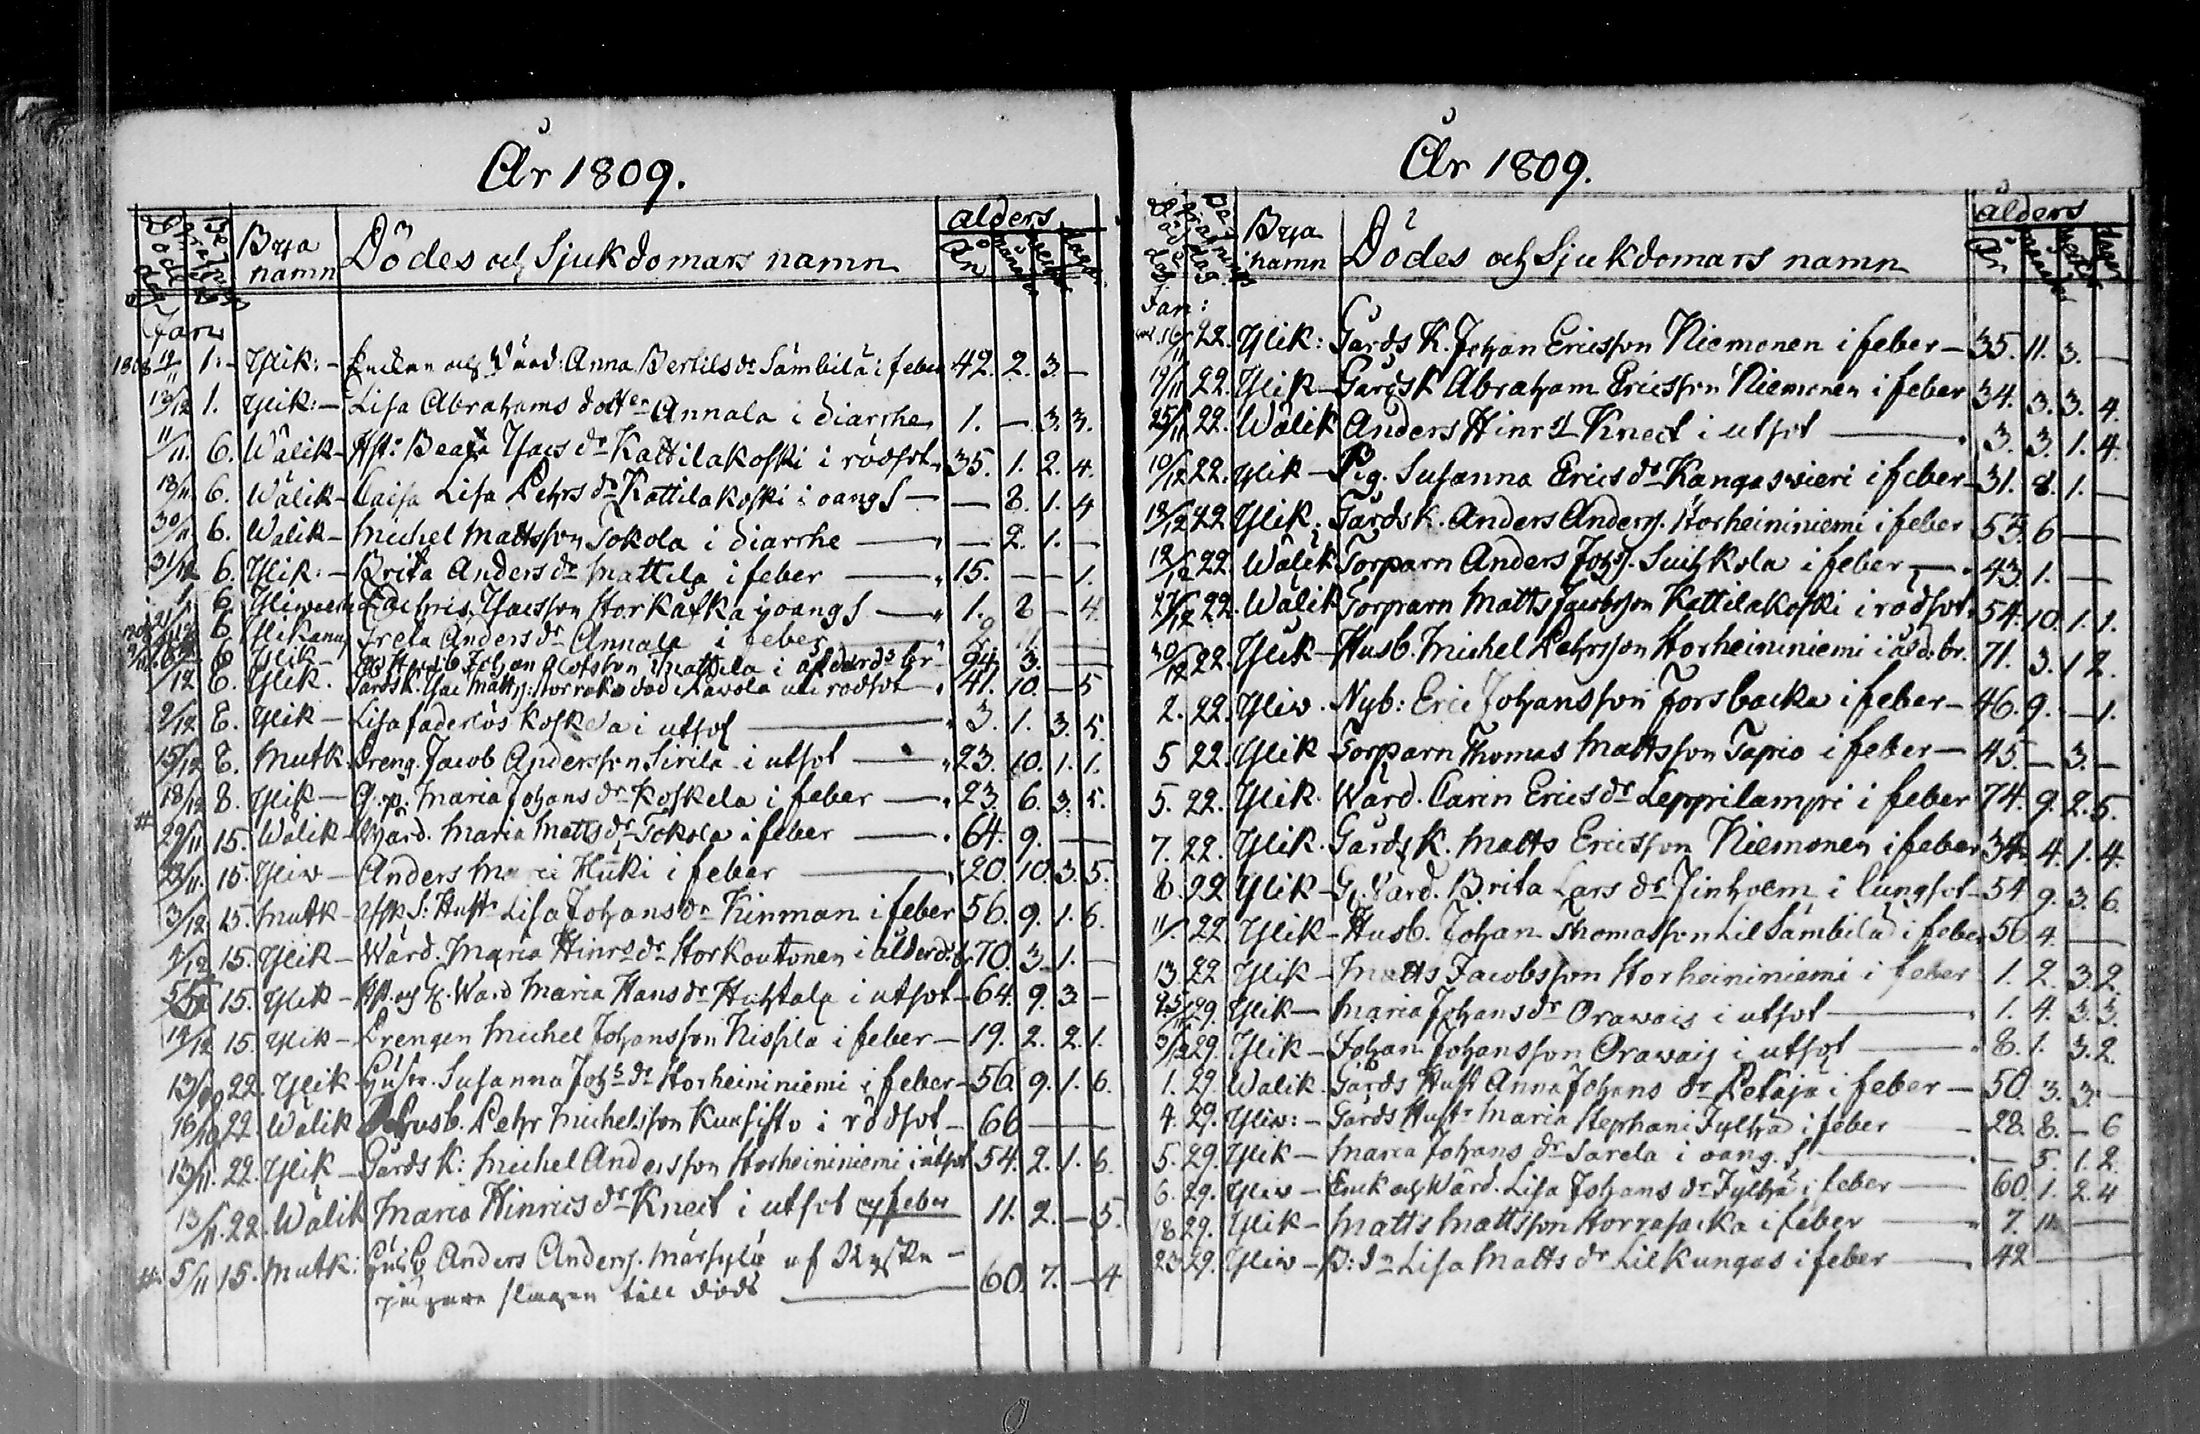 År 1809.
Döde dag Begrafnings dag Bya namn Dödes och Sjukdomars namn ålders År månader Veckor dagar
Janu
1808 12/11 1. Ylik: Enckan och Värd: Anna Bertils dr Sämbilä i feber 42. 2. 3. —
13/12 1. Ylik: Lisa Abrahams dotter Annala i diarrhe 1. — 3. 3.
11/11. 6. Wälik Hst: Beata Isacs dr Kattilakoski i rödsot 35. 1. 2. 4.
13/11 6. Wälik Caisa Lisa Pehrs dr Kattilakoski i oangf — 8. 1. 4
30/11 6. Wälik Michel Mattsson Tokola i diarrhe — 2. 1. —
31/12 6. Ylik: Brita Anders dr Mattila i feber 15. — — 1.
6. Zachris Isacsson Storkafka i oangf 1. 8 — 4.
6. Ylikanus Greta Anders dr Annala i feber
8 Ylik Husb Johan Olofsson Mattila i ålderds br 94. 3. —
/12 8. Ylik. Gårds K. Isac Matts: Korrako död i Lavola uti rodsot 41. 10. — 5
9/12 8. Ylik Lisa faderlös Koskela i utsot 3. 1. 3. 5.
15/12 8. Mutk. Dreng. Jacob Andersson Sirila i utsot 23. 10. 1. 1.
18/12 8. Ylik G. p. Maria Johans dr Koskela i feber 23. 6. 3. 5.
29/11 15. Wälik Wärd. Maria Matts dr Tokola i feber 64. 9. —
23/11. 15. Yliv Anders Marci Huki i feber 20. 10. 3. 5.
3/12 15. Mutk Hustr Lisa Johans dr Kinman i feber 56. 9. 1. 6.
9/12 15. Ylik Wärd. Maria Hinrs dr Storkoutonen i ålderd: br 70. 3. 1. —
15. Ylik Hst. och G. Ward Maria Hans dr Huhtala i utsot 64. 9. 3. —
19/12 15. Ylik Drengen Michel Johansson Nissila i feber 19. 2. 2. 1.
13/10 22. Ylik Hustr. Susanna Johs dr Horheininiemi i feber 56. 9. 1. 6.
16/10 22. Wälik Husb. Pehr Michelsson Kuusisto i rödsot 66 — —
13/11. 22. Ylik Gårds K: Michel Andersson Horheininiemi i utsot 54. 2. 1. 6.
13/11. 22. Wälik Maria Hinrics dr Knect i utsot och feber 11. 2. — 5.
5/11 15. Mutk: Husb Anders Anders. Märsylä af Ryska
jägare slagen till döds 60. 7. — 4
År 1809.
Döde dag Begrafnings dag Bya namn Dödes och Sjukdomars namn ålders År månader Veckor dagar
Jan:
16/11 22. Ylik: Gårds K. Johan Ericsson Niemonen i feber 35. 11. 3. —
19/11 22. Ylik Gårds K Abraham Ericsson Niemonen i feber 34. 3. 3. 4.
25/11 22. Wälik Anders Hinr s Knect i utsot 3. 3. 1. 4.
10/12 22. Ylik Pig. Susanna Erics dr Kangaswieri i feber 31. 8. 1. —
13/12 22. Ylik: Gårds K. Anders Anders. Horheininiemi i feber 53. 6 —
12/12 22. Wälik Torparn Anders Johs. Suihkola i feber 43. 1. —
27/12 22. Wälik Torparn Matts Jacobsson Kattilakoski i rödsot 54. 10. 1. 1.
30/12 22. Ylik Husb. Michel Pehrsson Horheininiemi i åld: br. 71. 3. 1 2.
2. 22. Yliv. Nyb: Eric Johansson Forsbacka i feber 46. 9. — 1.
5 22. Ylik Torparn Thomas Mattsson Tapio i feber 45. — 3. —
5. 22. Ylik. Wärd. Carin Erics dr Leppilampi i feber 74. 9. 2. 5.
7. 22. Ylik. Gårds K. Matts Ericsson Niemonen i feber 34 4. 1. 4.
8. 22 Ylik G. Värd. Brita Lars dr Jinhoem i lungsot 54 9. 3. 6.
11/1 22. Ylik Husb. Johan Thomasson Lil Sämbilä i feber 56 4. —
13. 22 Ylik Matts Jacobsson Horheininiemi i feber 1. 2. 3. 2.
25/11 29. Ylik Maria Johans dr Orawais i utsot 1. 4. 3. 3.
3/12 29. Ylik Johan Johansson Orawais i utsot 8. 1. 3. 2.
1. 29. Walik Gårds Hust Anna Johans dr Petäja i feber 50. 3. 3. —
4. 29. Yliv: Gårds Hustr Maria Stephani Jylhä i feber 28. 8. — 6
5. 29. Ylik Maria Johans dr Sarela i oang. f — 5. 1. 2.
6. 29. Yliv Enck och Wärd. Lisa Johans dr Jylhä i feber 60. 1. 2. 4
18 29. Ylik Matts Mattsson Horrasacka i feber 7. 11. —
23. 29. Yliv P: d Lisa Matts dr Lilkungas i feber 42 —